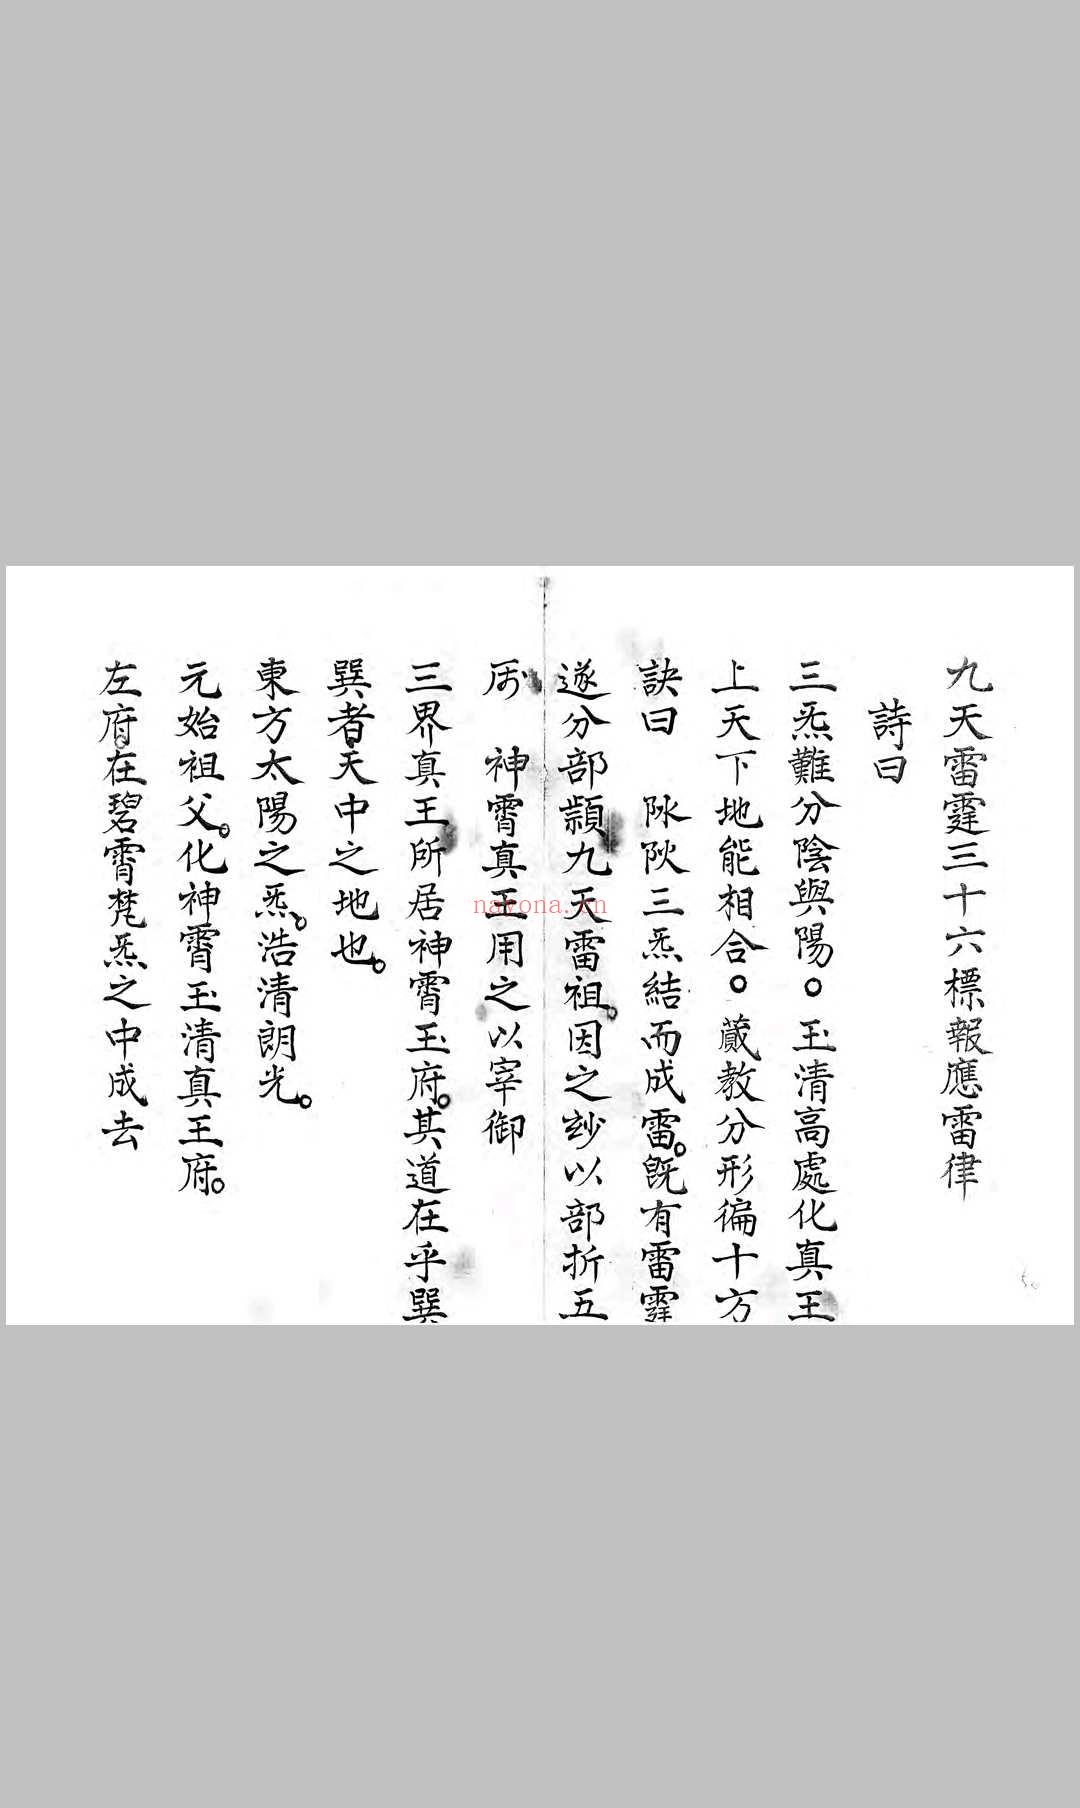 九天雷霆三十六標報應雷律
詩曰
三炁難分陰與陽。玉清高處化真王
上天下地能相合。蕆教分形徧十方
訣曰 阥阦三炁結而成雷。既有雷霆
遂分部頴九天雷祖。因之玅以部折五
屬 神霄真王用之以宰御
三界真王所居神霄玉府。其道在乎巽
巽者天中之地也。
東方太陽之炁。浩清朗光。
元始祖父。化神霄玉清真王府。
左府在碧霄梵炁之中成去
nayona.cn